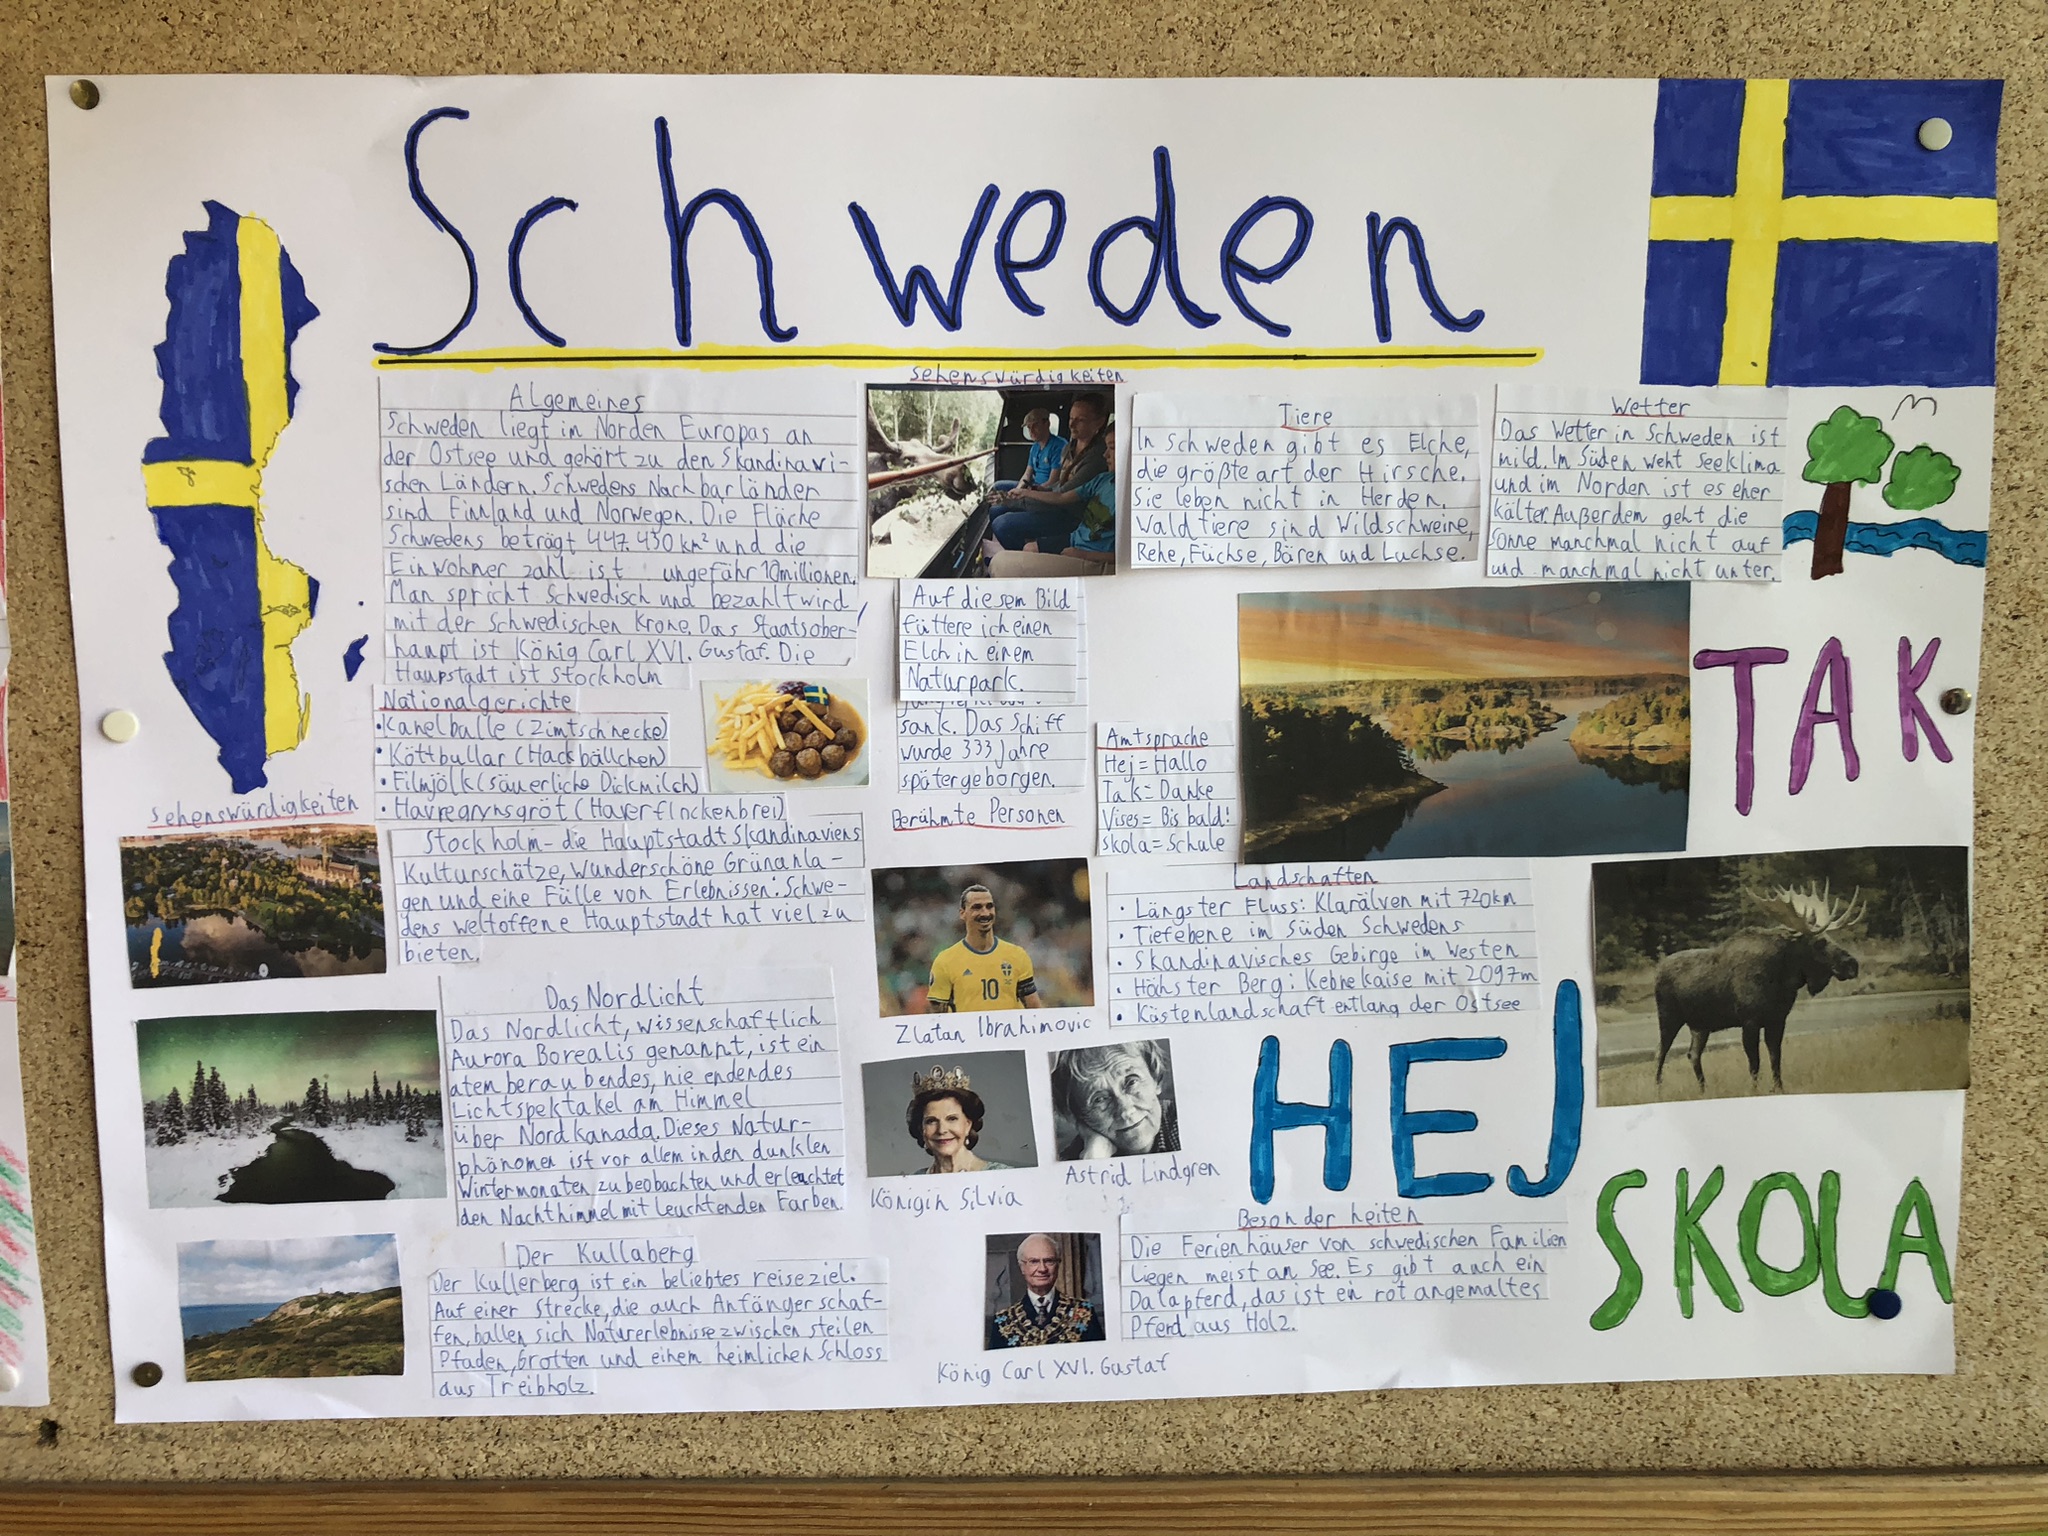 Schweden
Algemeines
Schweden liegt im Norden Europas an
der Ostsee und gehört zu den Skandinavi-
schen Ländern. Schwedens Nachbarländer
sind Finnland und Norwegen. Die Fläche
Schwedens beträgt 447.430 km² und die
Einwohner zahl ist ungefähr 10millionen.
Man spricht Schwedisch und bezahlt wird
mit der Schwedischen Krone. Das Staatsober-
haupt ist König Carl XVI. Gustaf. Die
Haupstadt ist Stockholm
Nationalgerichte
• Kanelbulle (Zimtschnecke)
• Köttbullar (Hackbällchen)
• Filmjölk (säuerliche Dickmilch)
• Havregrynsgröt (Haverflockenbrei)
sehenswürdigkeiten
Stockholm- die Hauptstadt Skandinaviens
Kulturschätze, Wunderschöne Grünanla-
gen und eine Fülle von Erlebnissen: Schwe-
dens weltoffene Hauptstadt hat viel zu
bieten.
Das Nordlicht
Das Nordlicht, wissenschaftlich
Aurora Borealis genannt, ist ein
atemberaubendes, nie endendes
Lichtspektakel am Himmel
über Nordkanada. Dieses Natur-
phänomen ist vor allem in den dunklen
Wintermonaten zu beobachten und erleuchtet
den Nachthimmel mit leuchtenden Farben.
Der Kullaberg
Der Kullerberg ist ein beliebtes reiseziel.
Auf einer Strecke, die auch Anfänger schaf-
fen, ballen sich Naturerlebnisse zwischen steilen
Pfaden, Grotten und einem heimlichen Schloss
aus Treibholz.
sehenswürdigkeiten
Auf diesem Bild
füttere ich einen
Elch in einem
Naturpark.
sank. Das Schiff
wurde 333 Jahre
später geborgen.
Berühmte Personen
10
Zlatan Ibrahimovic
Königin Silvia
Astrid Lindgren
König Carl XVI. Gustaf
Tiere
In schweden gibt es Elche,
die größte art der Hirsche.
Sie leben nicht in Herden.
Wald tiere sind Wildschweine,
Rehe, Füchse, Bären und Luchse.
Wetter
Das Wetter in Schweden ist
mild. Im Süden weht Seeklima
und im Norden ist es eher
kälter. Außerdem geht die
Sonne manchmal nicht auf
und manchmal nicht unter.
Amtsprache
Hej = Hallo
Tak = Danke
Vises = Bis bald!
skola = Schule
Landschaften
• Längster Fluss: Klarälven mit 720km
• Tiefebene im Süden Schwedens
• Skandinavisches Gebirge im Westen
• Höhster Berg: Kebnekaise mit 2097m
• Kästenlandschaft entlang der Ostsee
TAK
HEJ
SKOLA
Besonderheiten
Die Ferienhäuser von schwedischen Familien
Liegen meist an See. Es gibt auch ein
Dalapferd, das ist ein rot angemaltes
Pferd aus Holz.